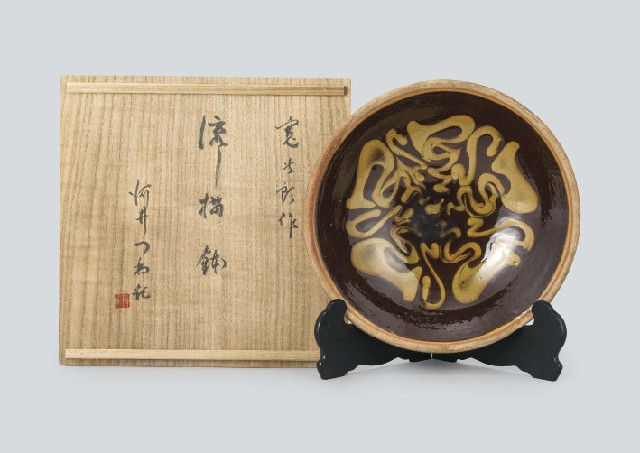 寛次郎作
流描鉢
河井つね記